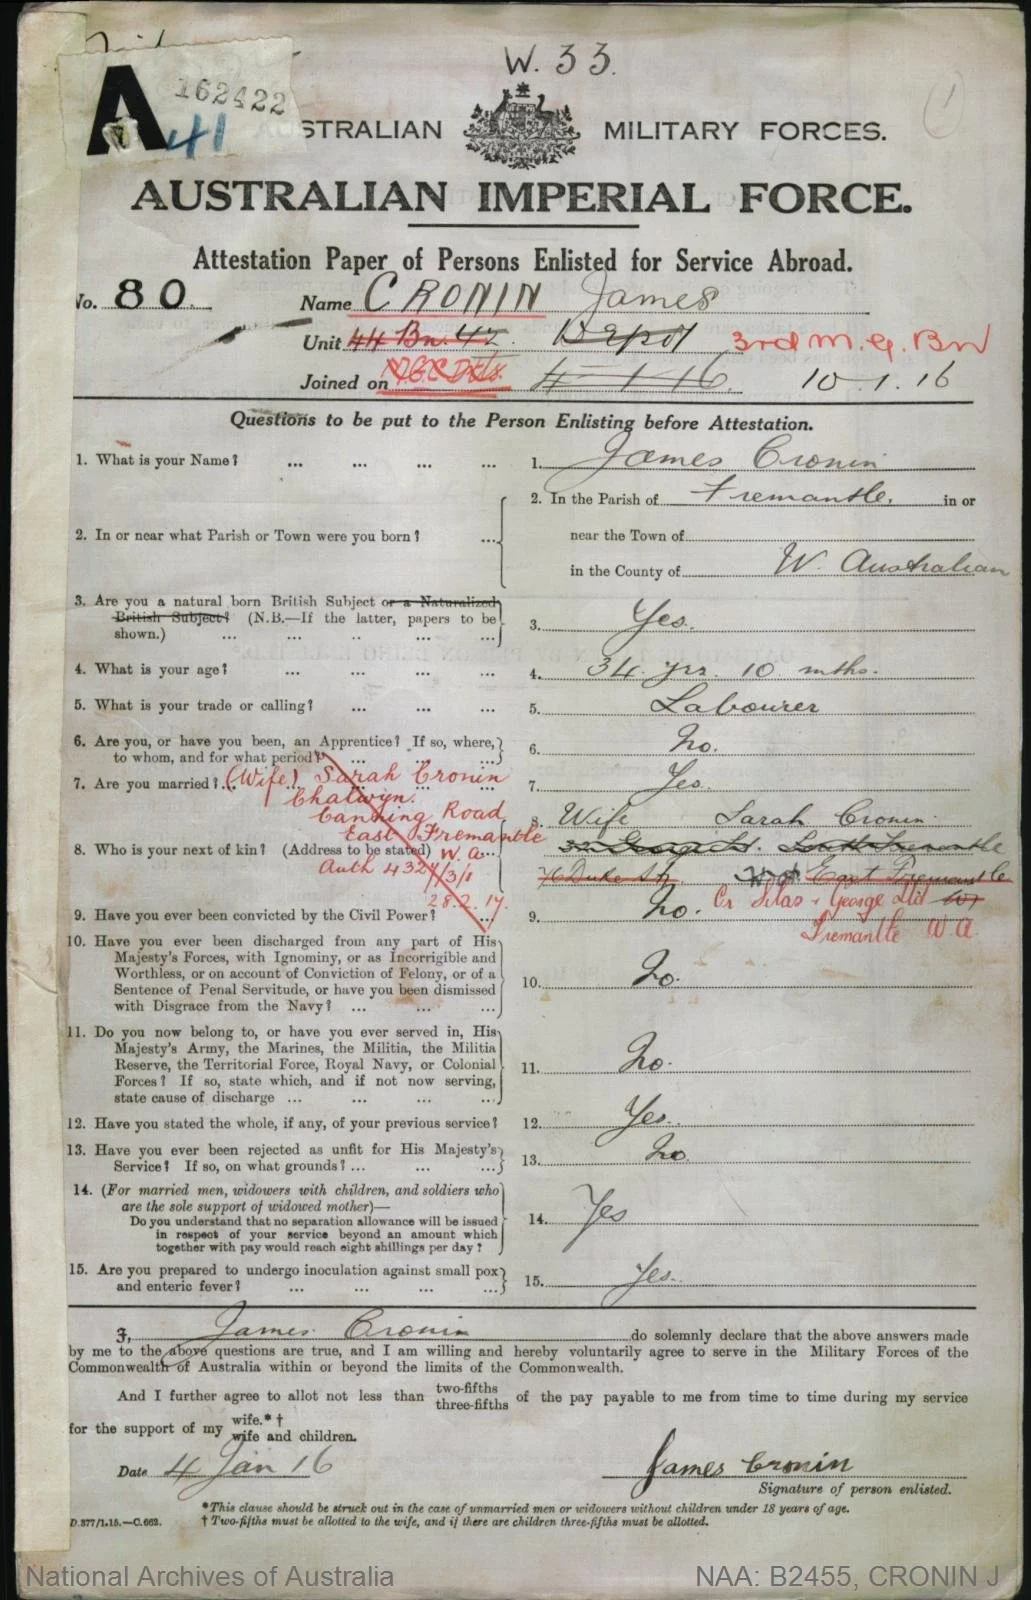 W. 33.
A 162422
41
AUSTRALIAN MILITARY FORCES.
AUSTRALIAN IMPERIAL FORCE.
Attestation Paper of Persons Enlisted for Service Abroad.
No. 80. Name CRONIN James
Unit 44 Bn. 42. Depot 3rd M. G. Bn
Joined on 4-1-16. 10.1.16
Questions to be put to the Person Enlisting before Attestation.
1. What is your Name? ... ... ... ... 1. James Cronin
2. In or near what Parish or Town were you born? ... 2. In the Parish of Fremantle. in or
near the Town of
in the County of W. Australian
3. Are you a natural born British Subject or a Naturalized
British Subject? (N.B.—If the latter, papers to be
shown.) ... ... .. ... ... 3. Yes.
4. What is your age? ... ... ... ... 4. 34 yrs. 10 mths.
5. What is your trade or calling? ... ... ... 5. Labourer
6. Are you, or have you been, an Apprentice? If so, where,
to whom, and for what period? ... ... ... 6. No.
7. Are you married? ... 7. Yes.
(Wife) Sarah Cronin
Chalwyn.
Canning Road
East Fremantle
W. A.
Auth 432 4/3/1
28.2.17.
8. Who is your next of kin? (Address to be stated) ... 8. Wife Sarah Cronin
George St. South Fremantle
76 Duke St East Fremantle
Cr Silas & George Ltd
Fremantle W A.
9. Have you ever been convicted by the Civil Power? ... 9. No.
10. Have you ever been discharged from any part of His
Majesty's Forces, with Ignominy, or as Incorrigible and
Worthless, or on account of Conviction of Felony, or of a
Sentence of Penal Servitude, or have you been dismissed
with Disgrace from the Navy? ... ... ... 10. No.
11. Do you now belong to, or have you ever served in, His
Majesty's Army, the Marines, the Militia, the Militia
Reserve, the Territorial Force, Royal Navy, or Colonial
Forces? If so, state which, and if not now serving,
state cause of discharge ... ... ... ... 11. No.
12. Have you stated the whole, if any, of your previous service? 12. Yes.
13. Have you ever been rejected as unfit for His Majesty's
Service? If so, on what grounds? ... ... ... 13. No.
14. (For married men, widowers with children, and soldiers who
are the sole support of widowed mother)—
Do you understand that no separation allowance will be issued
in respect of your service beyond an amount which
together with pay would reach eight shillings per day? 14. Yes
15. Are you prepared to undergo inoculation against small pox
and enteric fever? ... ... ... ... 15. Yes.
I, James Cronin do solemnly declare that the above answers made
by me to the above questions are true, and I am willing and hereby voluntarily agree to serve in the Military Forces of the
Commonwealth of Australia within or beyond the limits of the Commonwealth.
And I further agree to allot not less than two-fifths three-fifths of the pay payable to me from time to time during my service
for the support of my wife.*† wife and children.
Date 4 Jan 16 James Cronin
Signature of person enlisted.
*This clause should be struck out in the case of unmarried men or widowers without children under 18 years of age.
D.377/1.15.—C.662. † Two-fifths must be allotted to the wife, and if there are children three-fifths must be allotted.
National Archives of Australia NAA: B2455, CRONIN J